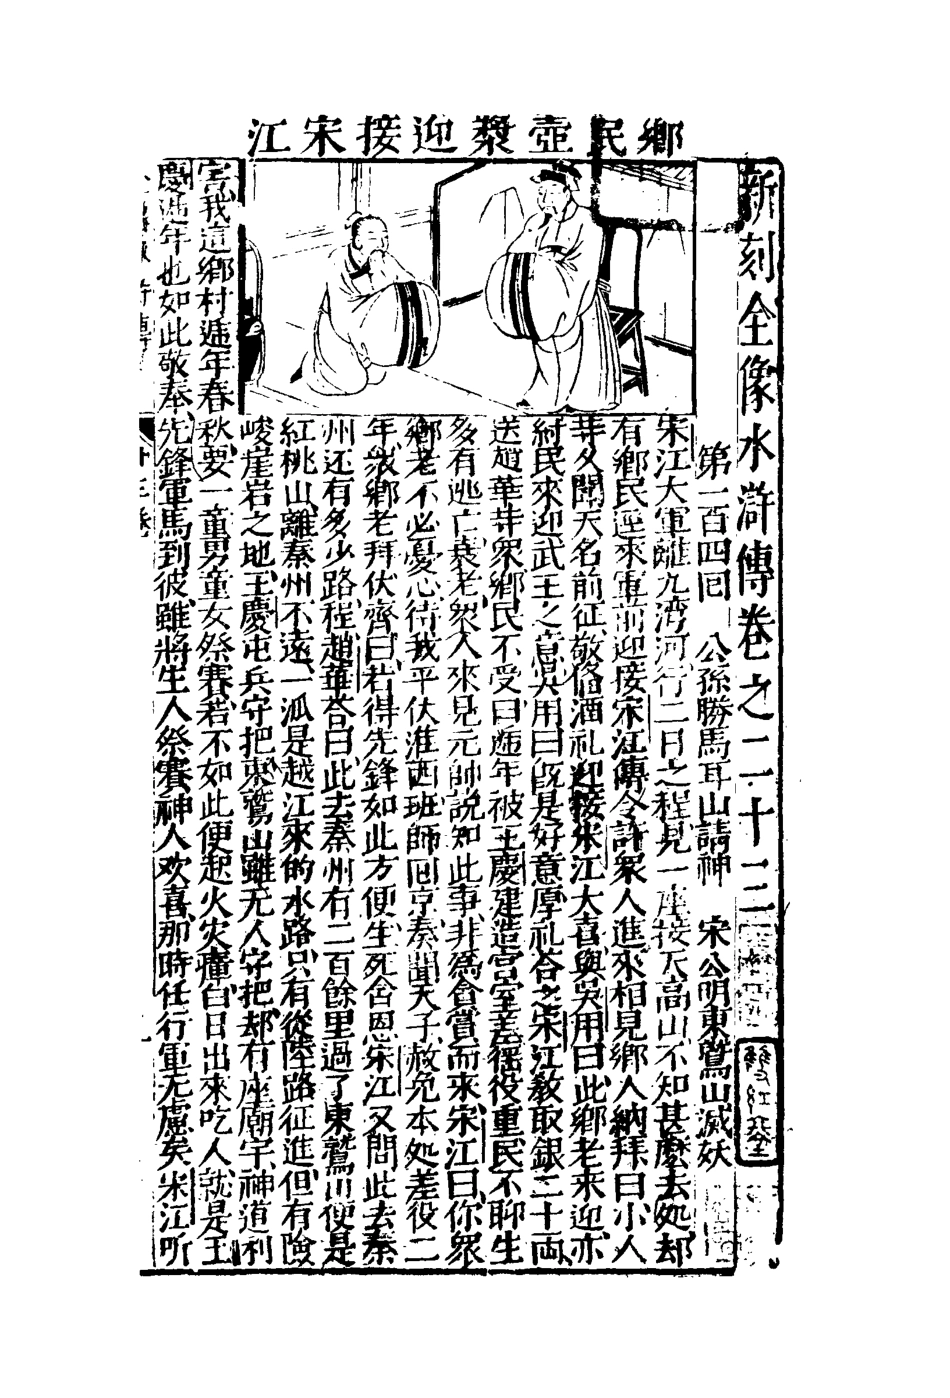 鄉民壺漿迎接宋江
新刻全像水滸傳卷之二十三
第一百四囘　公孫勝馬耳山請神　宋公明東鷲山滅妖
宋江大軍離九湾河行二日之程見一座接天高山不知甚麼去処却
有鄉民逕來軍前迎接宋江傳令許衆人進來相見鄉人納拜曰小人
等久聞天名前征敬俻酒礼迎接宋江大喜與吳用曰此鄉老來迎亦
紂民來迎武王之意吳用曰旣是好意厚礼荅之宋江教取銀二十両
送趙華等衆鄉民不受曰逓年被王慶建造宮室差徭役重民不聊生
多有逃亡衰老衆人來見元帥説知此事非為貪賞而來宋江曰你衆
鄉老不必憂心待我平伏淮西班師囘亰奏聞天子赦免本処差役二
年衆鄉老拜伏齊曰若得先鋒如此方便生死舍恩宋江又問此去秦
州还有多少路程趙華荅曰此去秦州有二百餘里過了東鷲山便是
紅桃山離秦州不遠一派是越江來的水路只有從陸路征進但有險
峻崖岩之地王慶屯兵守把東鷲山雖无人守把却有座廟宇神道利
害我這鄉村逓年春秋要一童男童女祭賽若不如此便起火灾瘟白日出來吃人就是王
慶逓年也如此敬奉先鋒軍馬到彼雖將生人祭賽神人欢喜那時任行軍无慮矣宋江听